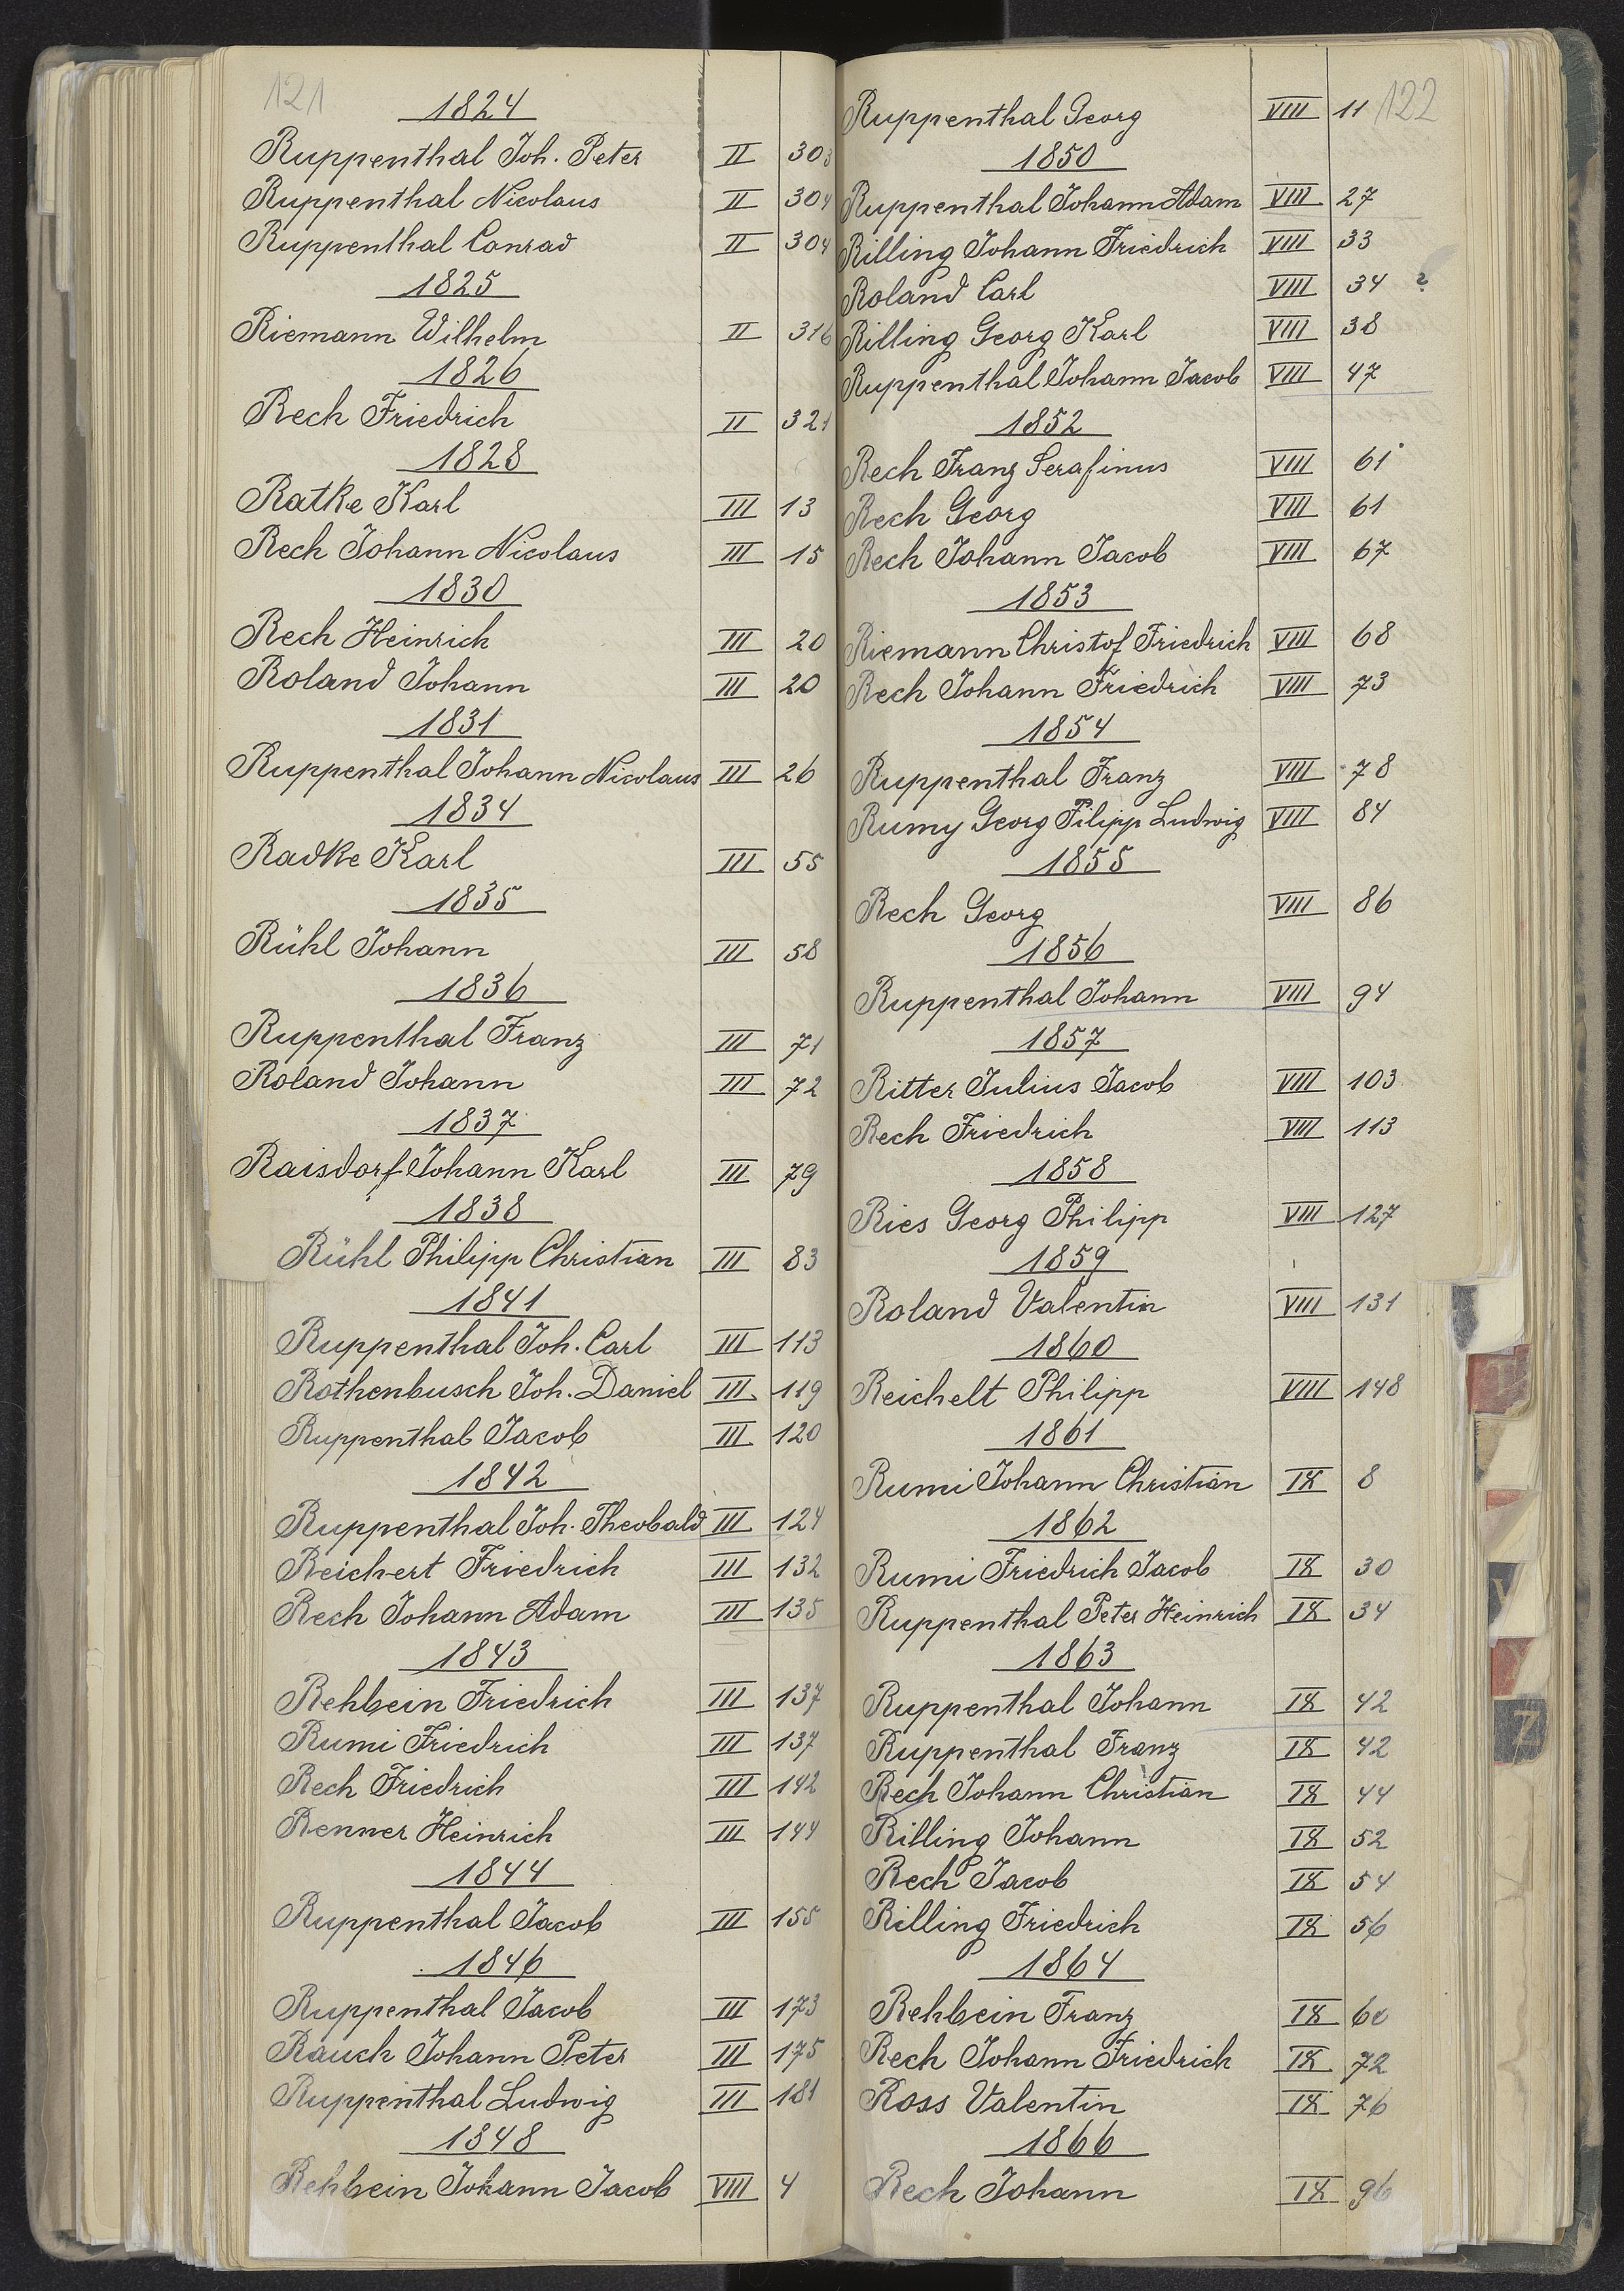 121
1824
Ruppenthal Joh. Peter II 303
Ruppenthal Nicolaus II 304
Ruppenthal Conrad II 304
1825
Riemann Wilhelm II 316
1826
Rech Friedrich II 321
1828
Ratke Karl III 13
Rech Johann Nicolaus III 15
1830
Rech Heinrich III 20
Roland Johann III 20
1831
Ruppenthal Johann Nicolaus III 26
1834
Radke Karl III 55
1835
Rühl Johann III 58
1836
Ruppenthal Franz III 71
Roland Johann III 72
1837
Raisdorf Johann Karl III 79
1838
Rühl Philipp Christian III 83
1841
Ruppenthal Joh. Carl III 113
Rothenbusch Joh. Daniel III 119
Ruppenthal Jacob III 120
1842
Ruppenthal Joh. Theobald III 124
Reichert Friedrich III 132
Rech Johann Adam III 135
1843
Rehbein Friedrich III 137
Rumi Friedrich III 137
Rech Friedrich III 142
Renner Heinrich III 144
1844
Ruppenthal Jacob III 155
1846
Ruppenthal Jacob III 173
Rauch Johann Peter III 175
Ruppenthal Ludwig III 181
1848
Rehbein Johann Jacob VIII 4
122
Ruppenthal Georg VIII 11
1850
Ruppenthal Johann Adam VIII 27
Rilling Johann Friedrich VIII 33
Roland Carl VIII 34 ?
Rilling Georg Karl VIII 38
Ruppenthal Johann Jacob VIII 47
1852
Rech Franz Serafinus VIII 61
Rech Georg VIII 61
Rech Johann Jacob VIII 67
1853
Riemann Christof Friedrich VIII 68
Rech Johann Friedrich VIII 73
1854
Ruppenthal Franz VIII 78
Rumy Georg Filipp Ludwig VIII 84
1855
Rech Georg VIII 86
1856
Ruppenthal Johann VIII 94
1857
Ritter Julius Jacob VIII 103
Rech Friedrich VIII 113
1858
Ries Georg Philipp VIII 127
1859
Roland Valentin VIII 131
1860
Reichelt Philipp VIII 148
1861
Rumi Johann Christian IX 8
1862
Rumi Friedrich Jacob IX 30
Ruppenthal Peter Heinrich IX 34
1863
Ruppenthal Johann IX 42
Ruppenthal Franz IX 42
Rech Johann Christian IX 44
Rilling Johann IX 52
Rech Jacob IX 54
Rilling Friedrich IX 56
1864
Rehbein Franz IX 60
Rech Johann Friedrich IX 72
Ross Valentin IX 76
1866
Rech Johann IX 96
Z